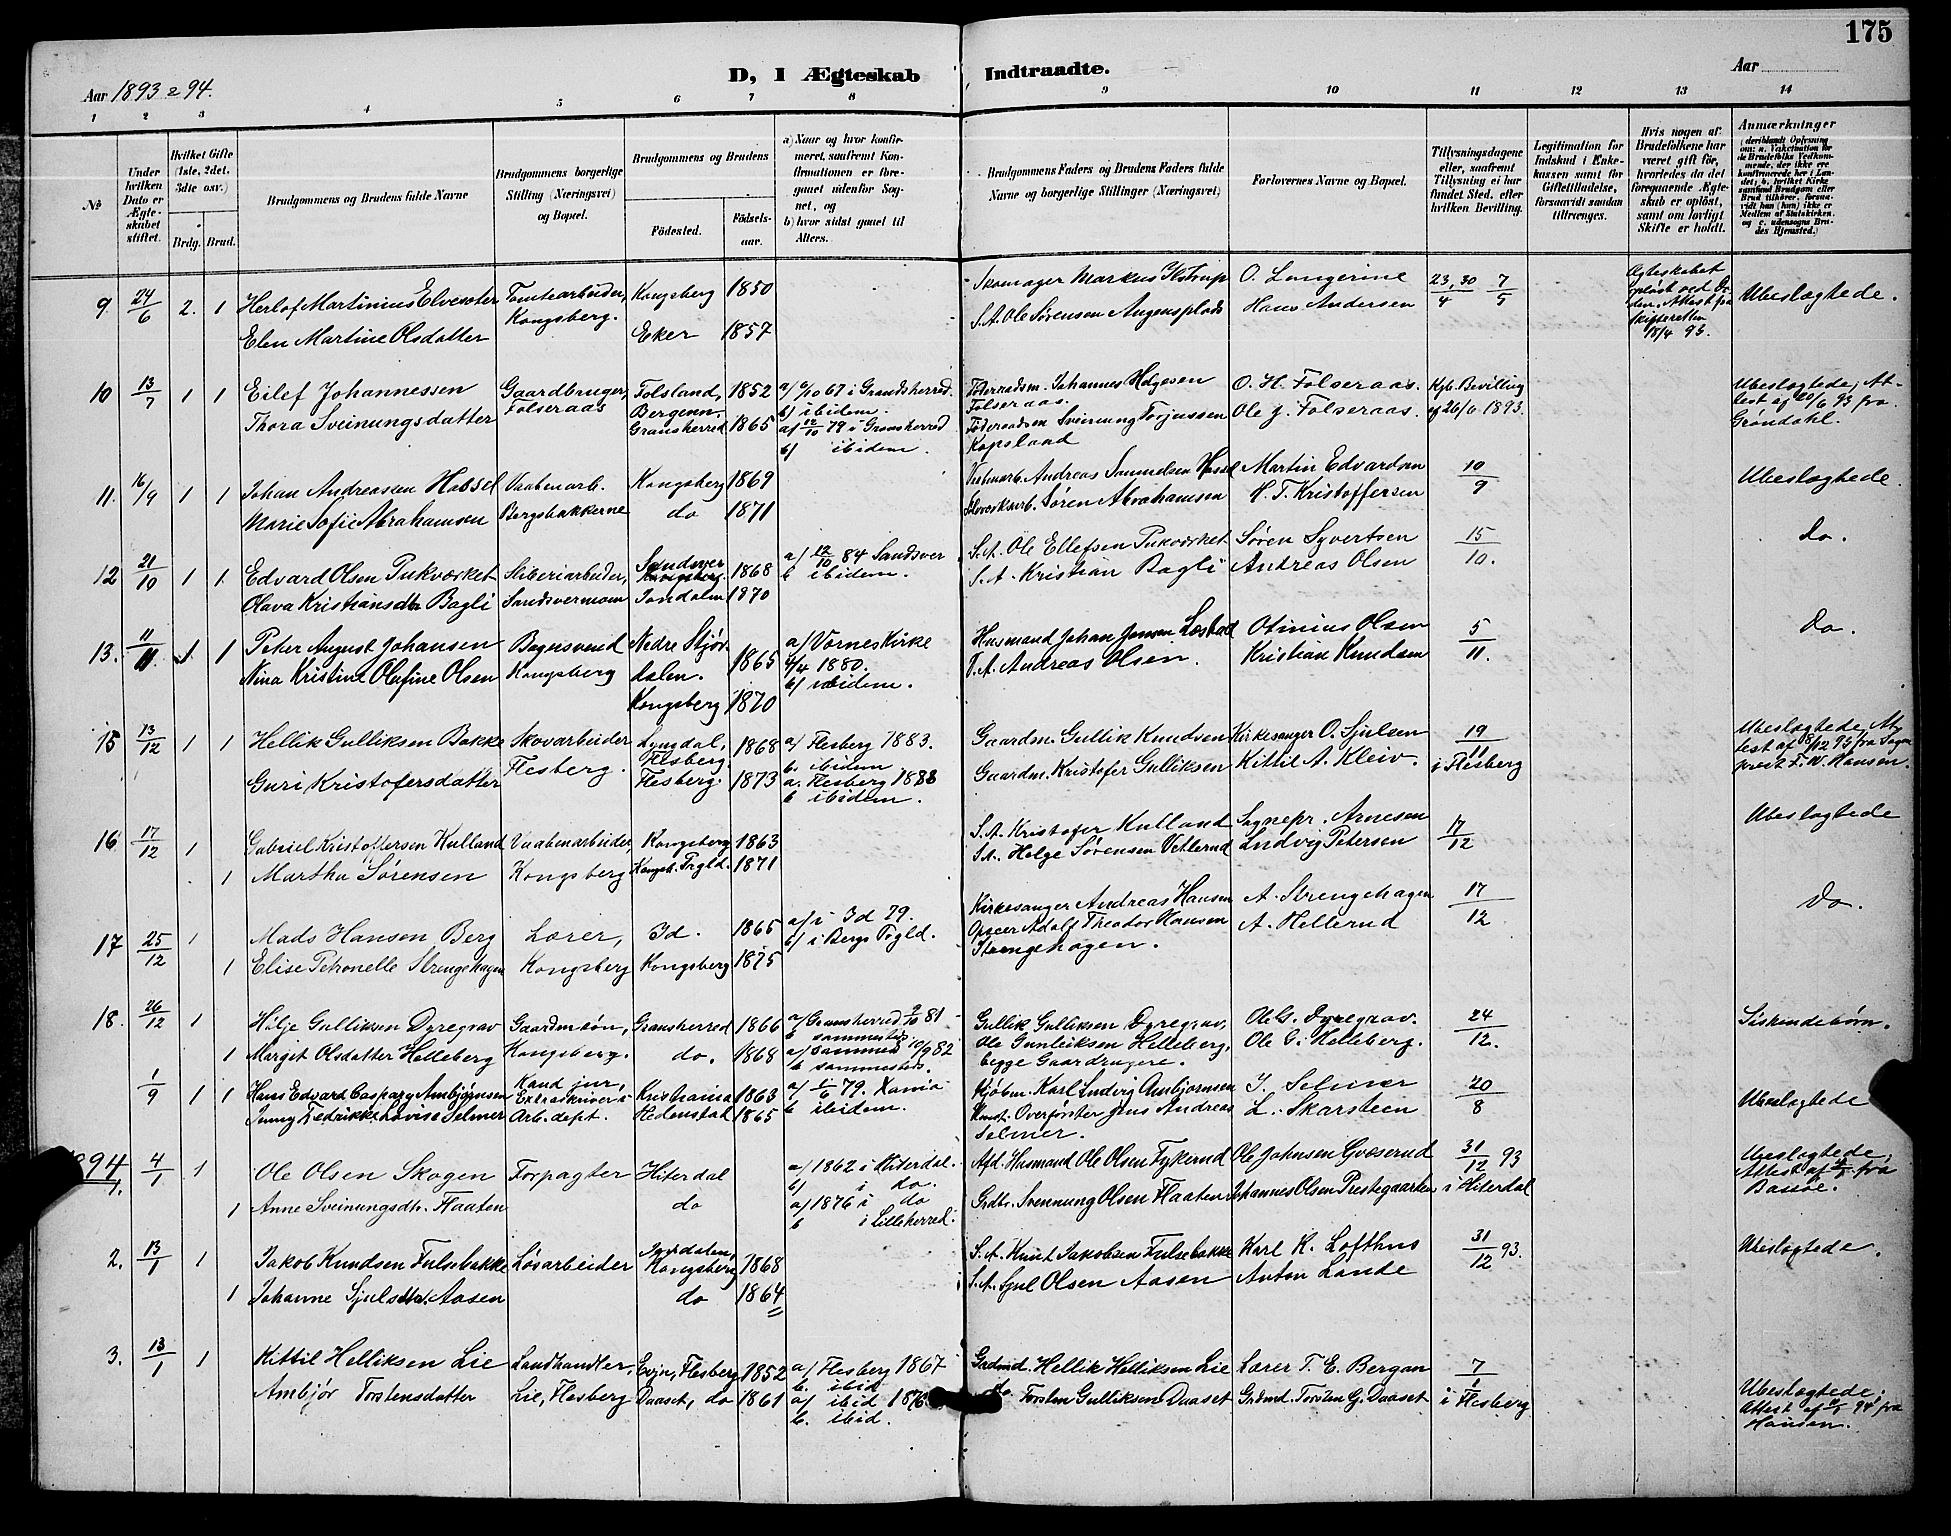 175
D, I Ægteskab Indtraadte.
Aar 1893 & 94.
Aar
1 2 3 4 5 6 7 8 9 10 11 12 13 14
No
Under hvilken Dato er Ægteskabet stiftet.
Hvilket Gifte (1ste, 2det, 3die osv.)
Brdg. Brud.
Brudgommens og Brudens fulde Navne
Brudgommens borgerlige Stilling (Næringsvei) og Bopæl.
Brudgommens og Brudens
Födested.
Födselsaar.
a) Naar og hvor konfirmeret, saafremt Konfirmationen er foregaaet udenfor Sognet, og
b) hvor sidst gaaet til Alters.
Brudgommens Faders og Brudens Faders fulde Navne og borgerlige Stillinger (Næringsvei)
Forlovernes Navne og Bopæl.
Tillysningsdagene eller, saafremt Tillysning ei har fundet Sted, efter hvilken Bevilling.
Legitimation for Indskud i Enkekassen samt for Giftetilladelse, forsaavidt saadan tiltrænges.
Hvis nogen af Brudefolkene har været gift før, hvorledes da det foregaaende Ægteskab er opløst, samt om lovligt Skifte er holdt.
Anmærkninger
9. 24/6 2. 1 Herlof Martinius Elveseter Tomtearbeider, Kongsberg 1850 Skomager Markus O. Langerine 23, 30/4 7/5 Ægteskabet opløst ved Døden, Attest fra Skifteretten 18/4 93. Ubeslægtede.
Kongsberg.
Elen Martine Olsdatter Eker 1857 S.A. Ole Sørensen Hans Andersen
10 13/7 1 1 Eilef Johannessen Gaardbruger, Folsland, 1852 a/ 67 i Gransherred Föderaadsm. Johannes Helgesen O. H. Folseraas. Kgb. Bevilling Ubeslægtede, Attest af 20/6 93 fra Grøndahl.
Folseraas Bergenn. b/ ibidem. Folseraas.
Thora Sveinungsdatter Gransherred 1865 a/ 12/10 79 i Gransherred Föderaadsm Sveinung Torjussen Ole J. Folseraas. af 26/6 1893.
b/ ibidem. Kopsland
11. 16/9 1 1 Johan Andreasen Hassel Vaabenarb. Kongsberg 1869 Andreas Samuelsen Hassel Martin Edvardsen 10/9 Ubeslægtede.
Marie Sofie Abrahamsen Bergsbakkerne do 1871 Søren Abrahamsen H. T. Kristoffersen
12 21/10 1 1. Edvard Olsen Pukværket Sliberiarbeider, Sandsver Kongsberg 1868 a/ 12/10 84 Sandsver S.A. Ole Ellefsen Pukværket Søren Syvertsen 15/10. do.
Olava Kristiansdtr Bagli Sandsvermoen Jondalen 1870 b ibidem. S.A. Kristian Bagli Andreas Olsen
13. 11/11 1 1 Peter August Johansen Bagersvend Nedre Stjørdalen. 1865 a/ Vornes Kirke Husmand Johan Jensen Otinius Olsen 5/11. do.
Nina Kristine Olufine Olsen Kongsberg Kongsberg 1870 4/4 1880. V.A. Andreas Olsen. Kristian Knudsen
b/ ibidem.
15 13/12 1 1 Hellik Gulliksen Bakke Skovarbeider Lyngdal, Flesberg. 1868 a/ Flesberg 1883. Gaardm. Gullik Knudsen Kirkesanger O. Sjulsen 19/11 Ubeslægtede, Attest af 8/12 93 fra Sognepræst F. W. Hansen.
Flesberg. b. ibidem
Guri Kristofersdatter Flesberg. 1873 a. Flesberg 1888 Gaardm. Kristofer Gulliksen Kittil A. Kleiv. i Flesberg
b ibidem.
16 17/12 1 Gabriel Kristoffersen Kulland Vaabenarbeider, Kongsberg 1863 S.A. Kristofer Kulland Sognepr. Arnesen 17/12 Ubeslægtede
1 Martha Sørensen Kongsberg Kongsb. Prgld. 1871 S.A. Helge Sørensen Vetlerud Ludvig Petersen
17 25/12 1 Mads Hansen Berg Lærer, Id. 1865 a/ i Id 79. Kirkesanger Andreas Hansen A. Strengehagen 17/12 do.
1 Elise Petronelle Strengehagen Kongsberg Kongsberg 1875 b/ i Bergs Prgld. Adolf Theodor Hansen A. Hellerud
Strengehagen.
18. 26/12 1 Hølje Gulliksen Dyregrav Gaardmsøn, Gransherred 1866 a/ Gransherred 9/10 81 Gullik Gulliksen Dyregrav, Ole G. Dyregrav. 24/12. Söskendebørn.
b sammesteds
1 Margit Olsdatter Helleberg Kongsberg. do. 1868 a/ sammest 10/9 82 Ole Gunleiksen Helleberg, Ole O. Helleberg.
b sammesteds. begge Gaardbrugere.
1/9 1 1 Hans Edvard Caspary Ambjørnsen Kand jur, Kristiania 1863 a/ 1/6 79. Xania Kjøbm. Karl Ludvig Ambjørnsen J. Selmer 20/8 Ubeslægtede
Jenny Fredrikke Lovise Selmer Extraskriver i Arb. dept. Hedenstad 1865 b ibidem. Konst. Overførster Jens Andreas L. Skarsteen
Selmer.
1894 1. 4/1 1 Ole Olsen Skogen Forpagter Hiterdal a/ 1862 i Hiterdal. Afd. Husmand Ole Olsen Tykerud Ole Johnsen Gvæserud 31/12 93 Ubeslægtede, Attest af fra Bassøe.
b/ i do.
1 Anne Sveinungsdtr. Flaaten do a/ 1876 i do Grdbr. Svennung Olsen Flaaten Johannes Olsen Prestegaarden i Hiterdal
b i Lilleherred.
2. 13/1 1 Jakob Knudsen Fulsebakke Løsarbeider Jondalen, Kongsberg 1868 S.A. Knut Jakobsen Fulsebakke Karl K. Lofthus 31/12 93. Ubeslægtede.
1 Johanne Sjulsdtr. Aasen do 1864 S.A. Sjul Olsen Aasen Anton Lande
3. 13/1 1 Kittil Helliksen Lie Landhandler, Evju, Flesberg 1852 a/ Flesberg 1867 Grdmd. Hellik Helliksen Lie Lærer T. E. Bergan 7/1
b. ibid
Ambjør Torstensdatter Lie, Flesberg Daaset, do 1861 a/ ibid 1876 do Torsten Gulliksen Daaset Grdmd. Torsten G. Daaset i Flesberg Ubeslægtede; Attest af 94 fra Hansen.
b. ibid.